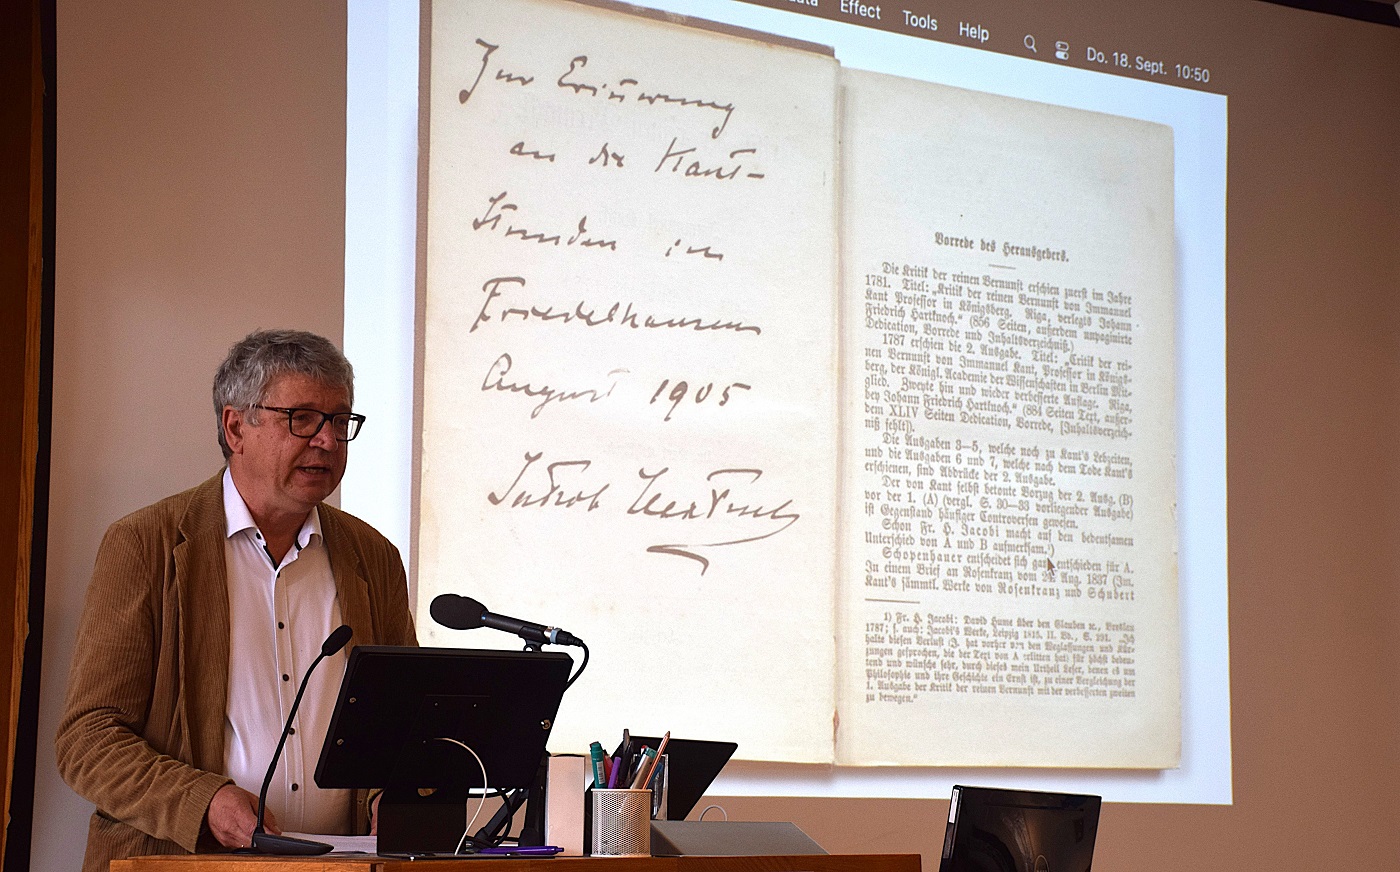 Effect Tools Help Do. 18. Sept. 10:50
Zur Erinnerung
an die Kant-
Stunden in
Friedelhausen
August 1905
Vorrede des Herausgebers.
Die Kritik der reinen Vernunft erschien zuerst im Jahre
1781. Titel: „Kritik der reinen Vernunft von Immanuel
Kant Professor in Königsberg. Riga, verlegts Johann
Friedrich Hartknoch.“ (856 Seiten, außerdem unpaginirte
Dedication, Vorrede und Inhaltsverzeichniß.)
1787 erschien die 2. Ausgabe. Titel: „Critik der rei-
nen Vernunft von Immanuel Kant, Professor in Königs-
berg, der Königl. Academie der Wissenschaften in Berlin Mit-
glied. Zweyte hin und wieder verbesserte Auflage. Riga,
bey Johann Friedrich Hartknoch.“ (884 Seiten Text, außer-
dem XLIV Seiten Dedication, Vorrede, [Inhaltsverzeich-
niß fehlt]).
Die Ausgaben 3—5, welche noch zu Kant's Lebzeiten,
und die Ausgaben 6 und 7, welche nach dem Tode Kant's
erschienen, sind Abdrücke der 2. Ausgabe.
Der von Kant selbst betonte Vorzug der 2. Ausg. (B)
vor der 1. (A) (vergl. S. 30—33 vorliegender Ausgabe)
ist Gegenstand häufiger Controversen gewesen.
Schon Fr. H. Jacobi macht auf den bedeutsamen
Unterschied von A und B aufmerksam.¹)
Schopenhauer entscheidet sich ganz entschieden für A.
In einem Brief an Rosenkranz vom 24. Aug. 1837 (Im.
Kant's sämmtl. Werke von Rosenkranz und Schubert
1) Fr. H. Jacobi: David Hume über den Glauben ꝛc., Breslau
1787; s. auch: Jacobi's Werke, Leipzig 1815. II. Bd., S. 291. „Ich
halte diesen Verlust (J. hat vorher von den Weglassungen und Kür-
zungen gesprochen, die der Text von A erlitten hat) für höchst bedeu-
tend und wünsche sehr, durch dieses mein Urtheil Leser, denen es um
Philosophie und ihre Geschichte ein Ernst ist, zu einer Vergleichung der
1. Ausgabe der Kritik der reinen Vernunft mit der verbesserten zweiten
zu bewegen.“